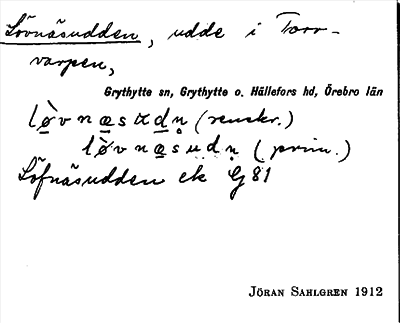 Lövnäsudden, udde i Torr-
varpen,
Grythytte sn, Grythytte o. Hällefors hd, Örebro län
(renskr.)
(prim.)
Löfnäsudden ek G 81
JÖRAN SAHLGREN 1912